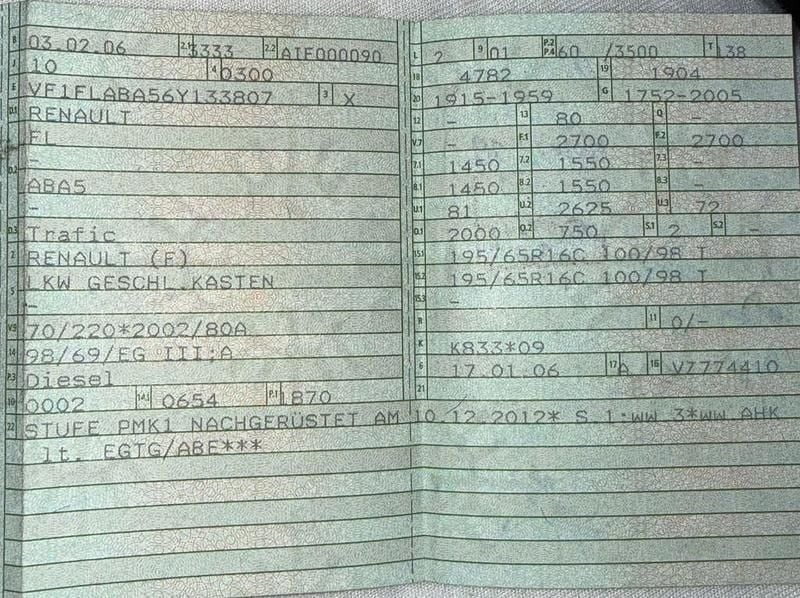 B 03.02.06 2.1 3333 2.2 AIE000090
J 10 4 0300
E VF1FLABA56Y133807 3 X
D.1 RENAULT
FL
-
D.2
ABA5
-
D.3 Trafic
2 RENAULT (F)
LKW GESCHL.KASTEN
5
-
V.9 70/220*2002/80A
14 98/69/EG III;A
P.3 Diesel
10 0002 14.1 0654 P.1 1870
L 2 9 01 P.2 P.4 60 /3500 T 138
18 4782 19 1904
20 1915-1959 G 1752-2005
12 - 13 80 Q -
V.7 - F.1 2700 F.2 2700
7.1 1450 7.2 1550 7.3 -
8.1 1450 8.2 1550 8.3 -
U.1 81 U.2 2625 U.3 72
O.1 2000 O.2 750 S.1 2 S.2 -
15.1 195/65R16C 100/98 T
15.2 195/65R16C 100/98 T
15.3 -
R 11 0/-
K K833*09
6 17.01.06 17 A 16 VZ774410
21
22 STUFE PMK1 NACHGERÜSTET AM 10.12.2012* S.1:WW 3*WW AHK
lt. EGTG/ABE***